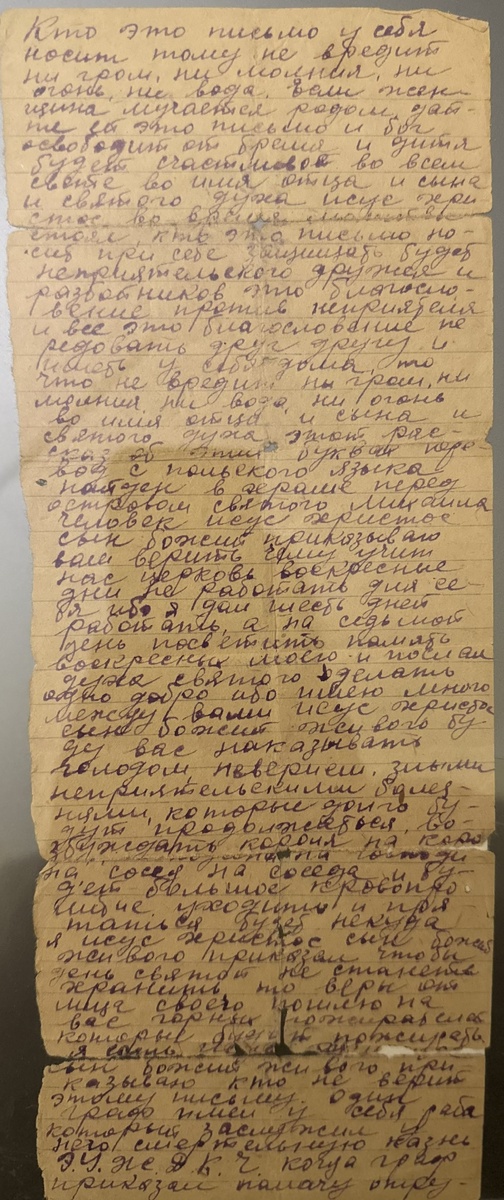 Кто это письмо у себя
носит тому не вредит
ни гром, ни молния, ни
огонь, ни вода. Если жен-
щина мучается родом дай-
те ей это письмо и бог
освободит от бремя и дитя
будет счастливое во всем
свете во имя отца и сына
и святого духа исус хри
стос во время
стоял, кто это письмо но-
сит при себе защищать будет
неприятельского дружея и
разбойников это благосло-
вение против неприятеля
и все это благословение пе
редовать друг другу и
иметь у себя дома, то
что не вредит ни гром, ни
молния ни вода, ни огонь
во имя отца и сына и
святого духа этот рас-
сказ об этих буквах пере-
вод с польского языка
найден в храме перед
островом святого михаила
человек исус христос
сын божий приказываю
вам верить чему учит
нас церковь воскресные
дни не работать для се-
бя ибо я дал шесть дней
работать, а на седьмой
день посветить память
воскресных моего и послал
духа святого зделать
одно добро ибо имею много
между вами исус христос
сын божий живого бу
ду вас наказывать
голодом, неверием, злыми
неприятельскими болез-
нями, которые долго бу-
дут продолжаться, во-
збуждать короля на коро
на господи
на сосед на соседа и бу-
дет большое кровопро
литие уходить и пря-
таться будет некуда
я исус христос сын божий
живого приказал чтобы
день святой не станете
хранить то веры от
лица своего пошлю на
вас горных
которые будут пожирать
я
сын божия живого при-
казываю кто не верит
этому письму. один
граф имел у себя раба
который заслужил у
него смертельную казнь
когда граф
приказал палачу отру-